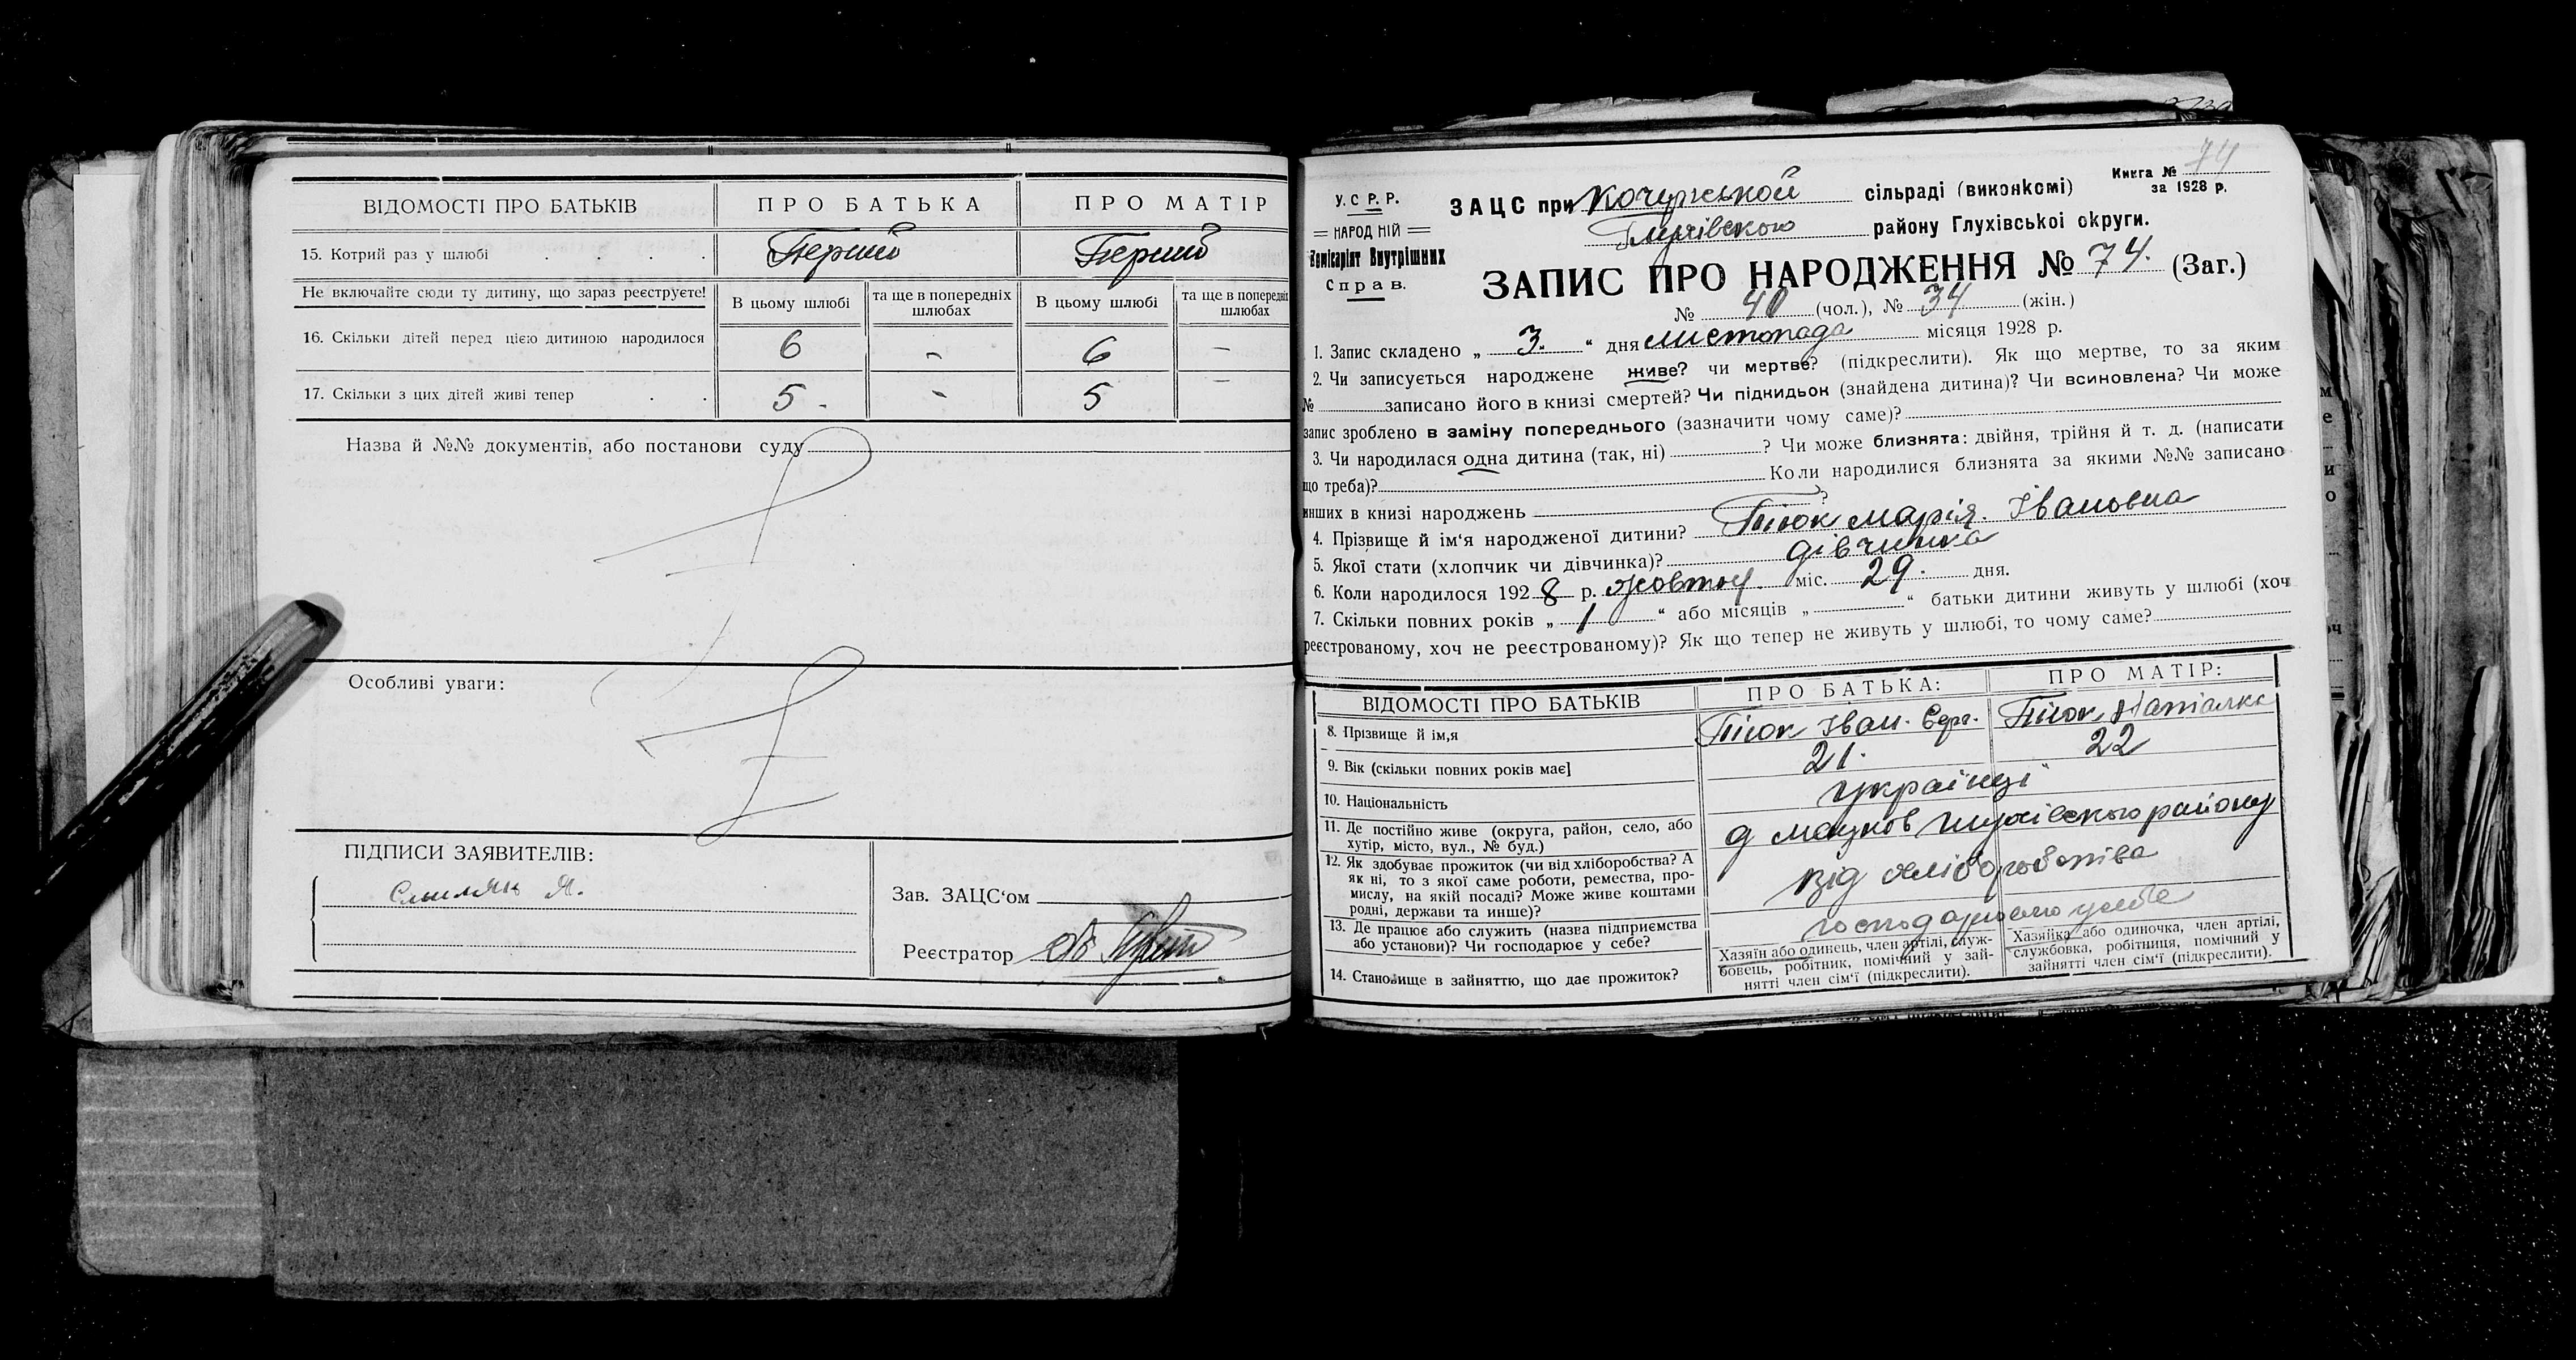 ВІДОМОСТІ ПРО БАТЬКІВ
ПРО БАТЬКА
ПРО МАТІР
15. Котрий раз у шлюбі
Перший
Перший
Не включайте сюди ту дитину, що зараз реєструєте!
В цьому шлюбі
та ще в попередніх шлюбах
В цьому шлюбі
та ще в попередніх шлюбах
16. Скільки дітей перед цією дитиною народилося
6 - 6 -
17. Скільки з цих дітей живі тепер
5. - 5 -
Назва й №№ документів, або постанови суду
Особливі уваги:
ПІДПИСИ ЗАЯВИТЕЛІВ:
Зав. ЗАЦС'ом
Реєстратор
Книга № 74
за 1928 р.
У.С.Р.Р.
НАРОДНІЙ
Комісаріят Внутрішних
Справ.
ЗАЦС при сільраді (виконкомі)
Глухівского району Глухівської округи.
ЗАПИС ПРО НАРОДЖЕННЯ № 74. (Заг.)
№ 40 (чол.), № 34 (жін.)
1. Запис складено „ 3. “ дня листопада місяця 1928 р.
2. Чи записується народжене живе? чи мертве? (підкреслити). Як що мертве, то за яким
№ записано його в книзі смертей? Чи підкидьок (знайдена дитина)? Чи всиновлена? Чи може
запис зроблено в заміну попереднього (зазначити чому саме)?
3. Чи народилася одна дитина (так, ні) ? Чи може близнята: двійня, трійня й т. д. (написати
що треба)? Коли народилися близнята за якими №№ записано
инших в книзі народжень ?
4. Прізвище й ім'я народженої дитини? Пiюк Марія Івановна
5. Якої стати (хлопчик чи дівчинка)? дівчинка
6. Коли народилося 1928 р. жовтня міс. 29. дня.
7. Скільки повних років „ 1 “ або місяців „ “ батьки дитини живуть у шлюбі (хоч
реєстрованому, хоч не реєстрованому)? Як що тепер не живуть у шлюбі, то чому саме?
ВІДОМОСТІ ПРО БАТЬКІВ
ПРО БАТЬКА:
ПРО МАТІР:
8. Прізвище й ім,я
Пiюк Іван
Пiюк Наталка
9. Вік (скільки повних років має]
21.
22
10. Національність
українці
11. Де постійно живе (округа, район, село, або
хутір, місто, вул., № буд.)
Глухівского району
12. Як здобуває прожиток (чи від хліборобства? А
як ні, то з якої саме роботи, ремества, про-
мислу, на якій посаді? Може живе коштами
родні, держави та инше)?
від хліборобства
13. Де працює або служить (назва підприємства
або установи)? Чи господарює у себе?
господарюємо у себе
14. Становище в зайняттю, що дає прожиток?
Хазяїн або одинець, член артілі, служ-
бовець, робітник, помічний у зай-
нятті член сім'ї (підкреслити).
Хазяйка або одиночка, член артілі,
службовка, робітниця, помічний у
зайнятті член сім'ї (підкреслити).